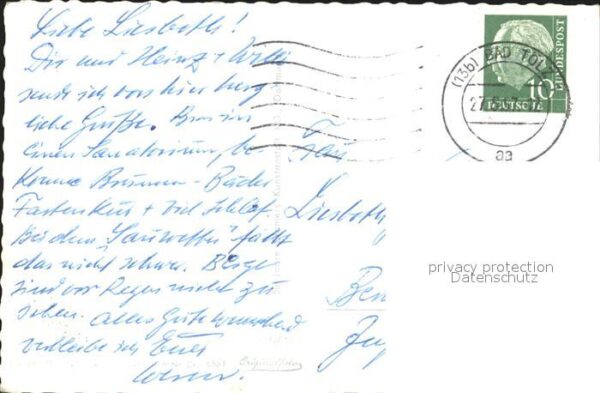 Liebe Liesbeth!
Dir und Heinz + Willi
sende ich von hier herz
liche Grüße. Bin in
einem Sanatorium, be-
komme Brunnen - Bäder
Fastenkur + viel Schlaf.
Bei dem "Sauwetter" fällt
das nicht schwer. Berge
sind vor Regen nicht zu
sehen. Alles Gute wünschend
verbleibe ich Euer
Werner.
Liesbeth
Ben
(13b) BAD TÖL
27.
aa
10
DEUTSCHE
BUNDESPOST
privacy protection
Datenschutz